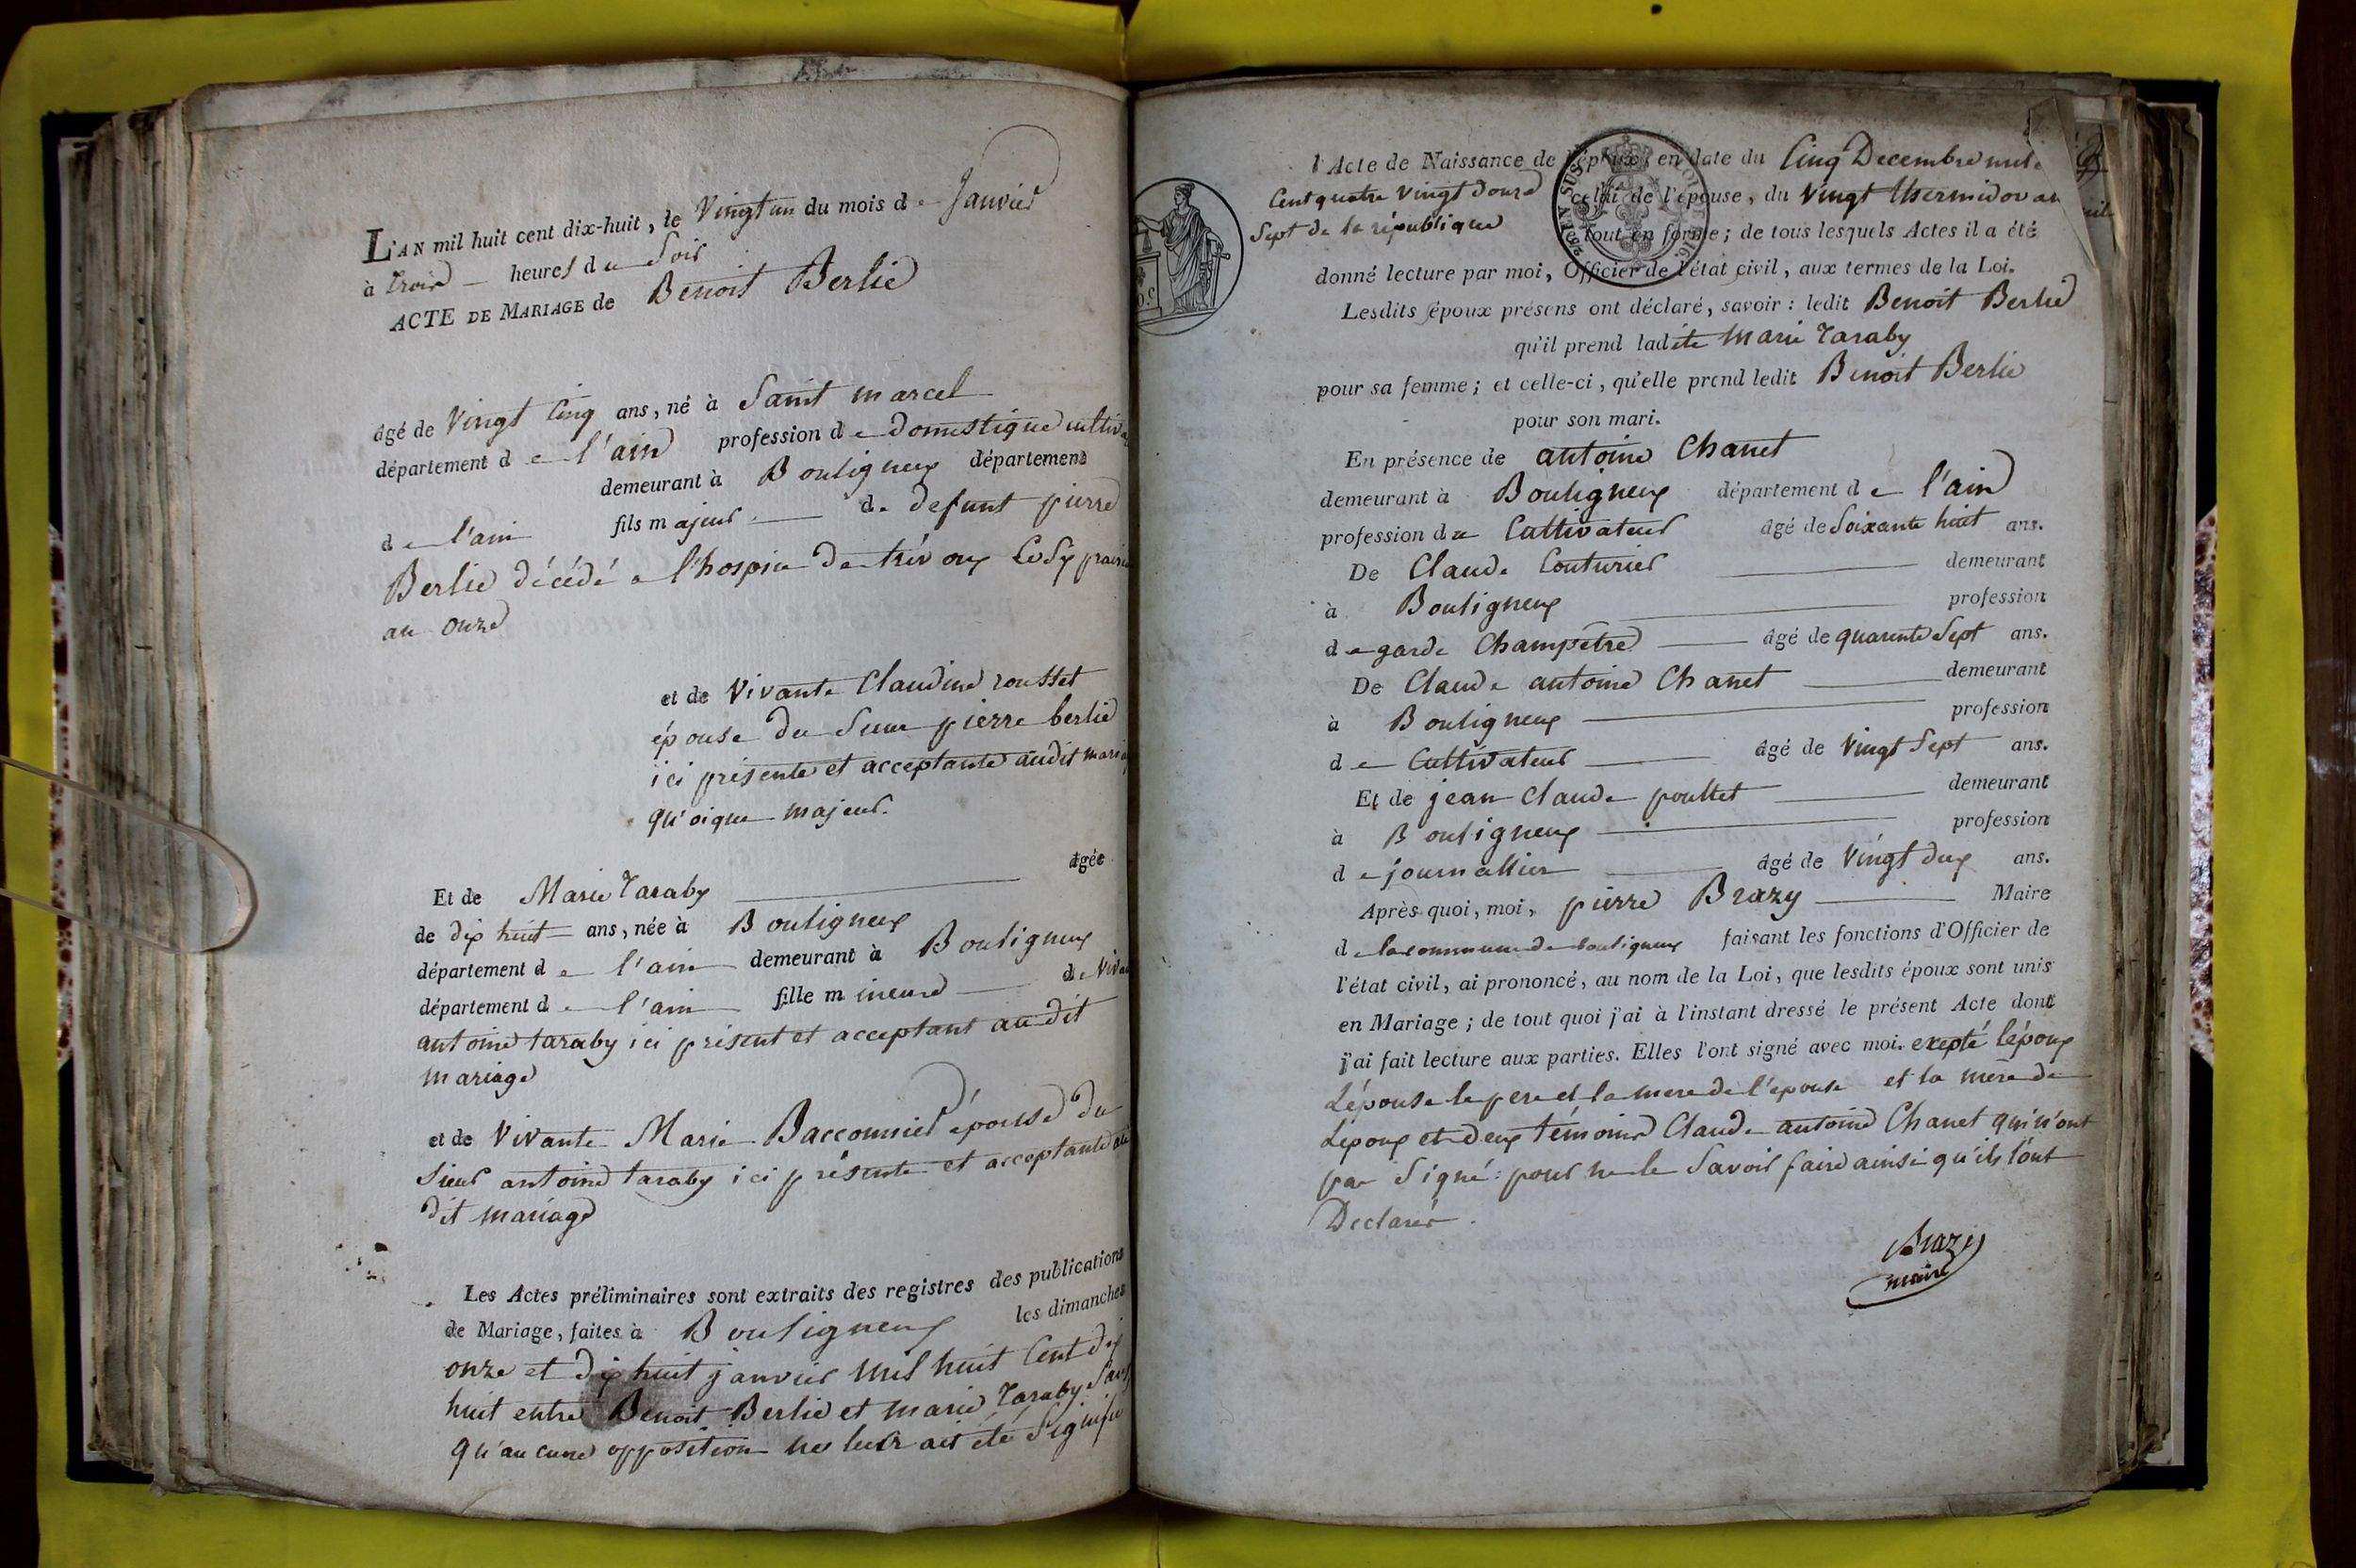 L'AN mil huit cent dix-huit, le Vingt un du mois de Janvier
à trois heures du Soir
ACTE DE MARIAGE de Benoit Berlie
âgé de Vingt Cinq ans, né à Saint marcel
département de l'ain profession de Domestique
demeurant à Bouligneux département
de l'ain fils majeur de defunt pierre
Berlie décédé a l'hospice de trévoux
an onze
et de Vivante Claudine rousset
épouse du Sieur pierre berlie
ici présente et acceptante audit
qu'oique majeur.
Et de Marie Taraby âgée
de dix huit ans, née à Bouligneux
département de l'ain demeurant à Bouligneux
département de l'ain fille mineure de
antoine taraby ici présent et acceptant au dit
mariage
et de Vivante Marie Bacconnier épouse du
Sieur antoine taraby ici présente et acceptante au
dit mariage
Les Actes préliminaires sont extraits des registres des publications
de Mariage, faites à Bouligneux les dimanches
onze et dix huit janvier mil huit Cent dix
huit entre Benoit Berlie et marie Taraby Sans
qu'aucune opposition ne leur ait été Signifié
l'Acte de Naissance de l'époux, en date du Cinq Decembre mil
Cent quatre Vingt Douze celui de l'épouse, du Vingt thermidor an
Sept de la république tout en forme; de tous lesquels Actes il a été
donné lecture par moi, Officier de l'état civil, aux termes de la Loi.
Lesdits époux présens ont déclaré, savoir : ledit Benoit Berlie
qu'il prend ladite Marie Taraby
pour sa femme; et celle-ci, qu'elle prend ledit Benoit Berlie
pour son mari.
En présence de antoine Chanet
demeurant à Bouligneux département de l'ain
profession de Cultivateur âgé de Soixante huit ans.
De Claude Couturier demeurant
à Bouligneux profession
de garde Champetre âgé de quarente Sept ans.
De Claude antoine Chanet demeurant
à Bouligneux profession
de Cultivateur âgé de Vingt Sept ans.
Et de jean Claude poullet demeurant
à Bouligneux profession
de journallier âgé de Vingt dux ans.
Après quoi, moi, pierre Brazy Maire
de la commune de bouligneux faisant les fonctions d'Officier de
l'état civil, ai prononcé, au nom de la Loi, que lesdits époux sont unis
en Mariage; de tout quoi j'ai à l'instant dressé le présent Acte dont
j'ai fait lecture aux parties. Elles l'ont signé avec moi. exepté l'époux
L'épouse le pere et la mere de l'epouse et la mere de
L'époux et deux témoins Claude antoine Chanet qui n'ont
pas Signé: pour ne le Savoir faire ainsi qu'ils l'ont
Declarés.
Brazy
maire